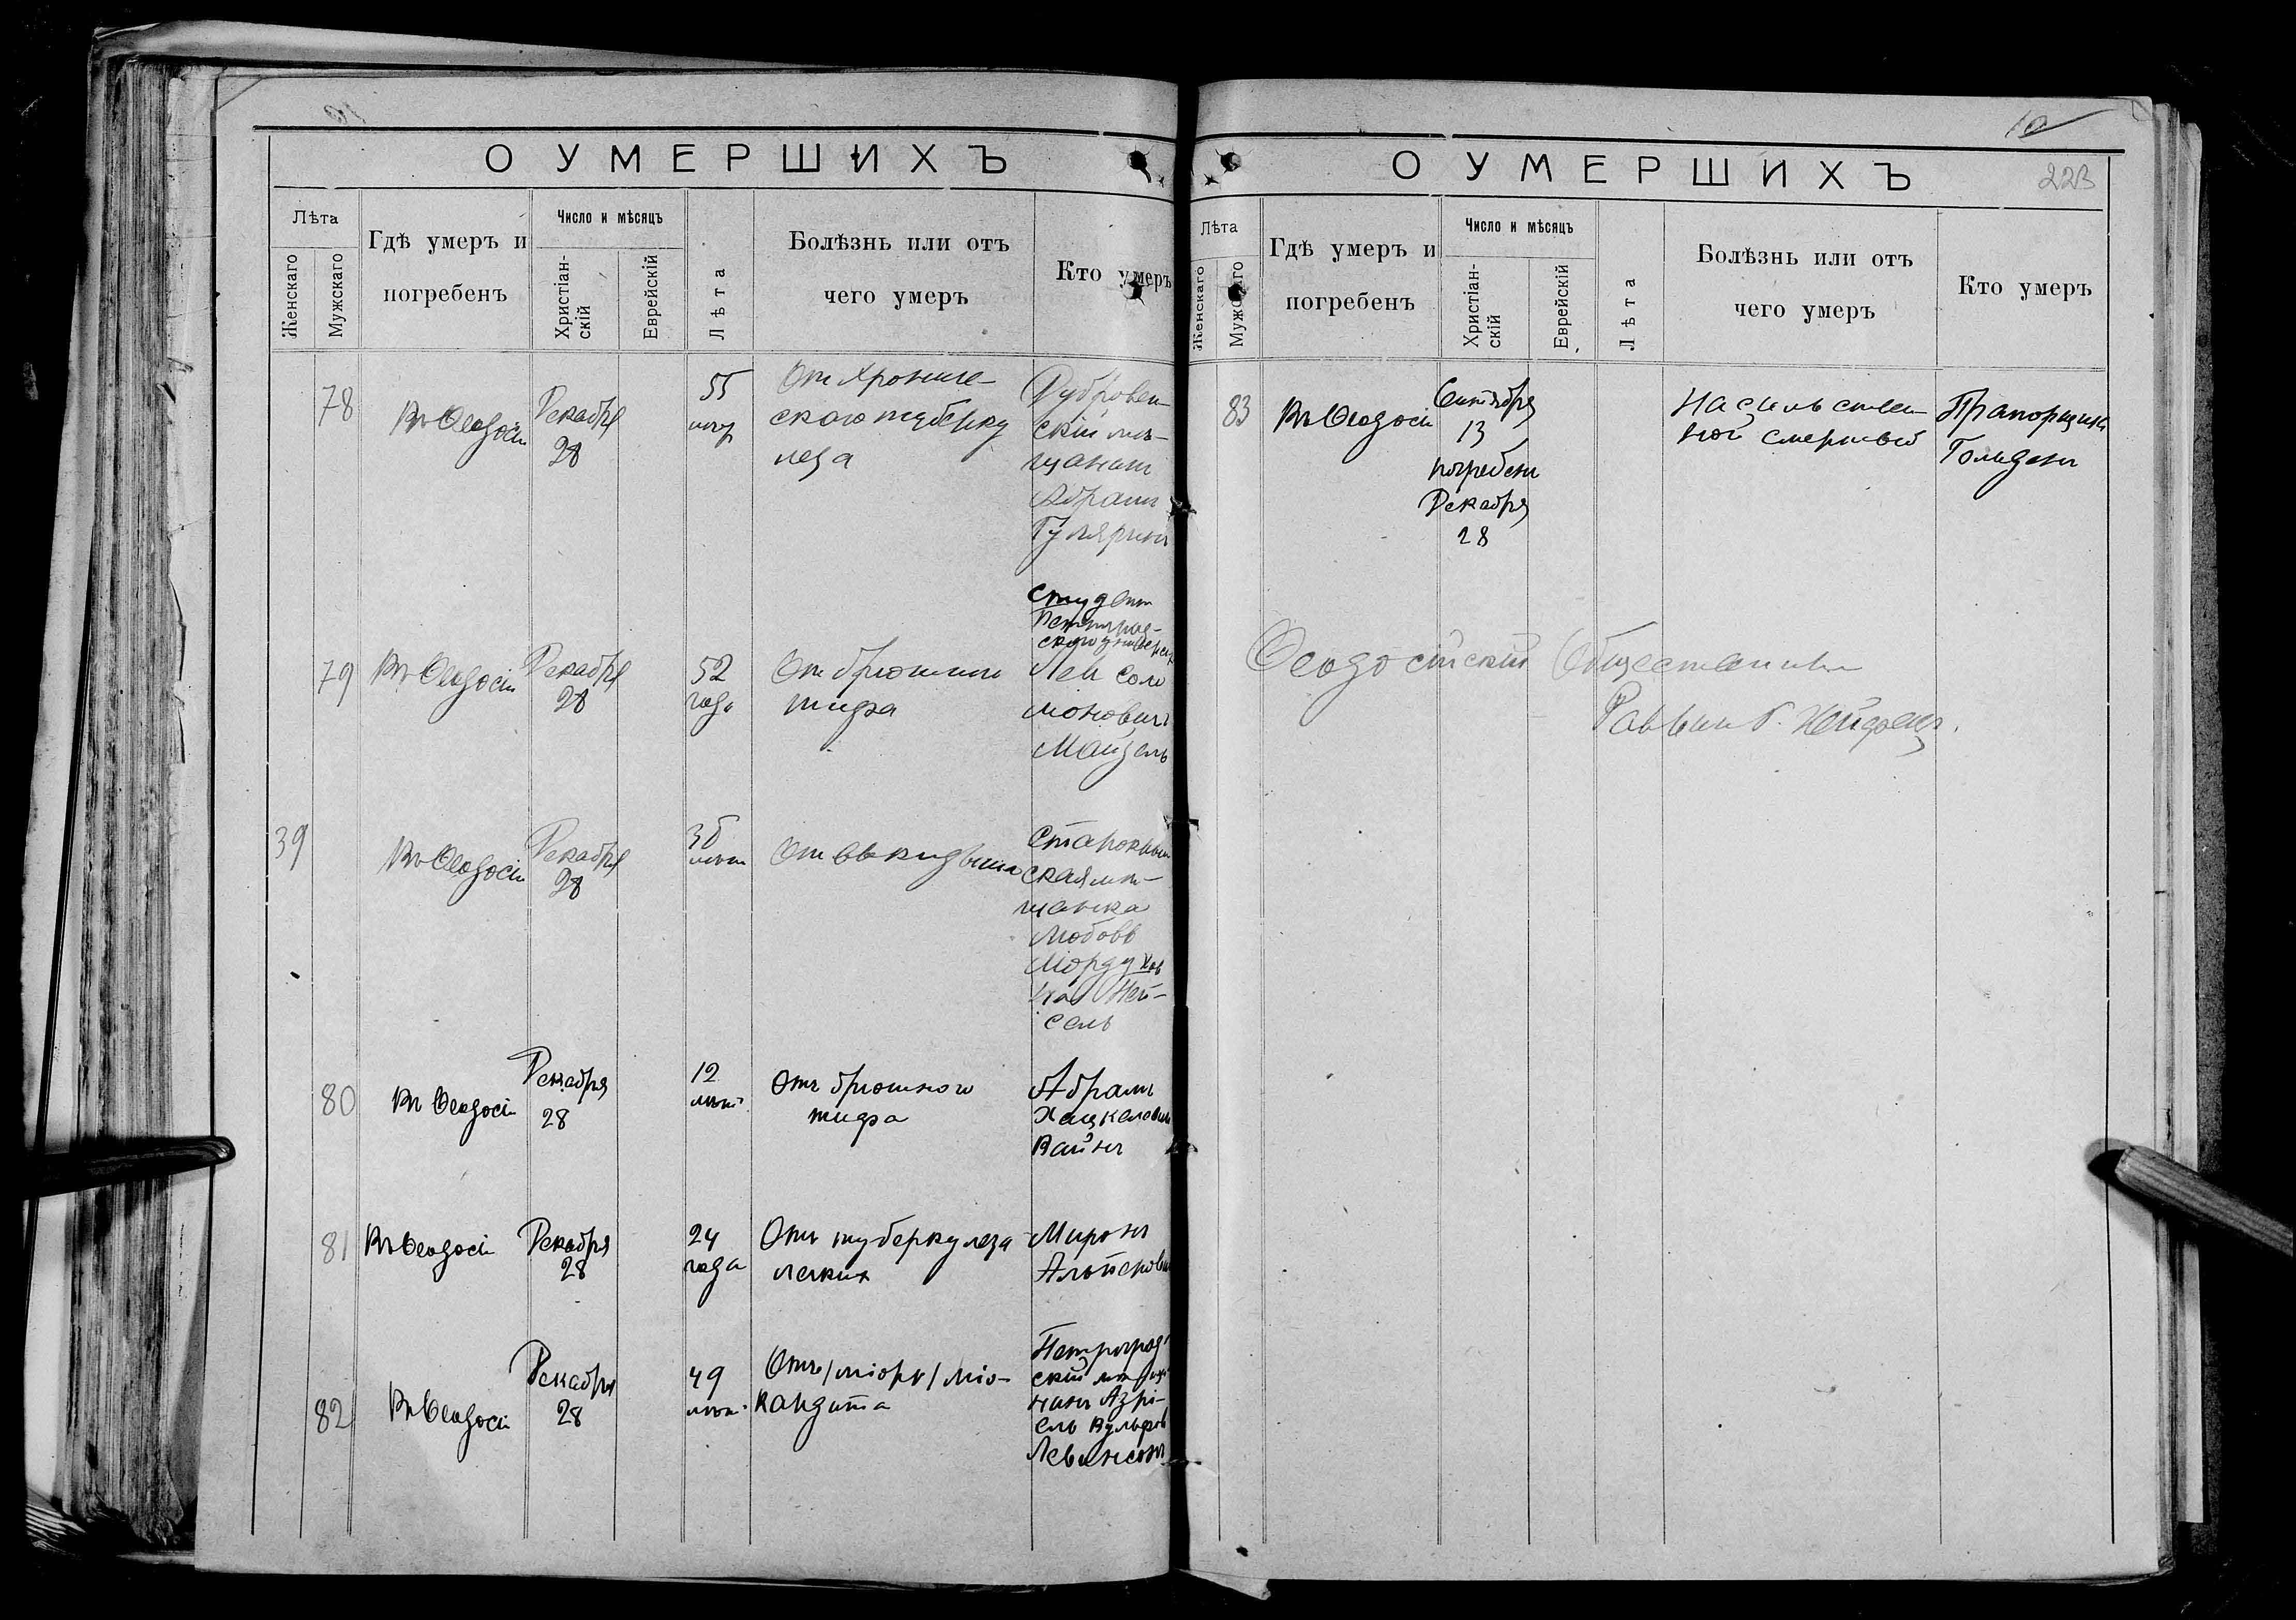 О УМЕРШИХЪ
Лѣта
Женскаго
Мужскаго
Гдѣ умеръ и
погребенъ
Число и мѣсяцъ
Христіан-
скій
Еврейскій
Лѣта
Болѣзнь или отъ
чего умеръ
Кто умеръ
78
Въ Ѳеодосіи
Декабря
28
55
От Хрониче-
скаго туберку
леза
Дубровен
скій мѣ-
щанинъ
Абрамъ
79
Въ Ѳеодосіи
Декабря
28
52
года
От брюшного
тифа
Студент
Петроград-
Лев Соло
моновичъ
Майзель
39
Въ Ѳеодосіи
Декабря
28
лѣтъ
От выкидыша
Старокрым
ская мѣ-
щанка
Любовь
Мордухов
на Ней-
сель
80
Въ Ѳеодосіи
Декабря
28
12
лѣтъ
Отъ брюшного
тифа
Абрамъ
Хацкелевич
Вайнъ
81
Въ Ѳеодосіи
Декабря
28
24
года
Отъ туберкулеза
легкихъ
Миронъ
82
Въ Ѳеодосіи
Декабря
28
49
лѣтъ
Отъ міо-
кардита
Петроград
скій мѣщ
нинъ Азрі-
ель Вульфов
Левинсонъ
10
О УМЕРШИХЪ
223
Лѣта
Женскаго
Мужскаго
Гдѣ умеръ и
погребенъ
Число и мѣсяцъ
Христіан-
скій
Еврейскій
Лѣта
Болѣзнь или отъ
чего умеръ
Кто умеръ
83
Въ Ѳеодосіи
Сентября
13
погребенъ
Декабря
28
Насильствен
ной смертью
Прапорщикъ
Гольденъ
Ѳеодосійскій Общественный
Раввин